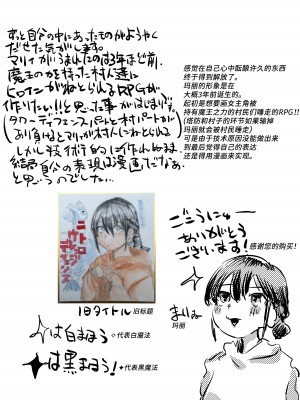 ずっと自分の中にあったものがようやく
だせた気がします。
マリィがうまれたのは3年ほど前、
魔王の力を持った村人達に
ヒロインがねとられるRPGが
作りたい!!!と思った事がはじまりで、
(タワーディフェンスパートと村パートが
あり負けるとマリィが村人にねとられる)
しかし技術的に作れぬまま、
結局自分の表現は漫画だなあ
と思うのでした…
感觉在自己心中酝酿许久的东西
终于得到解放了。
玛丽的形象是在
大概3年前诞生的。
起初是想要画女主角被
持有魔王之力的村民们睡走的RPG!!
(塔防和村子的环节如果输掉
玛丽就会被村民睡走)
可是由于技术原因没能做出来
到最后觉得自己的表达
还是得用漫画来实现。
旧タイトル 旧标题
ごこうにゅー
ありがとう
ございます!
感谢您的购买!
まりぃ
玛丽
は白まほう
代表白魔法
は黒まほう!
代表黑魔法